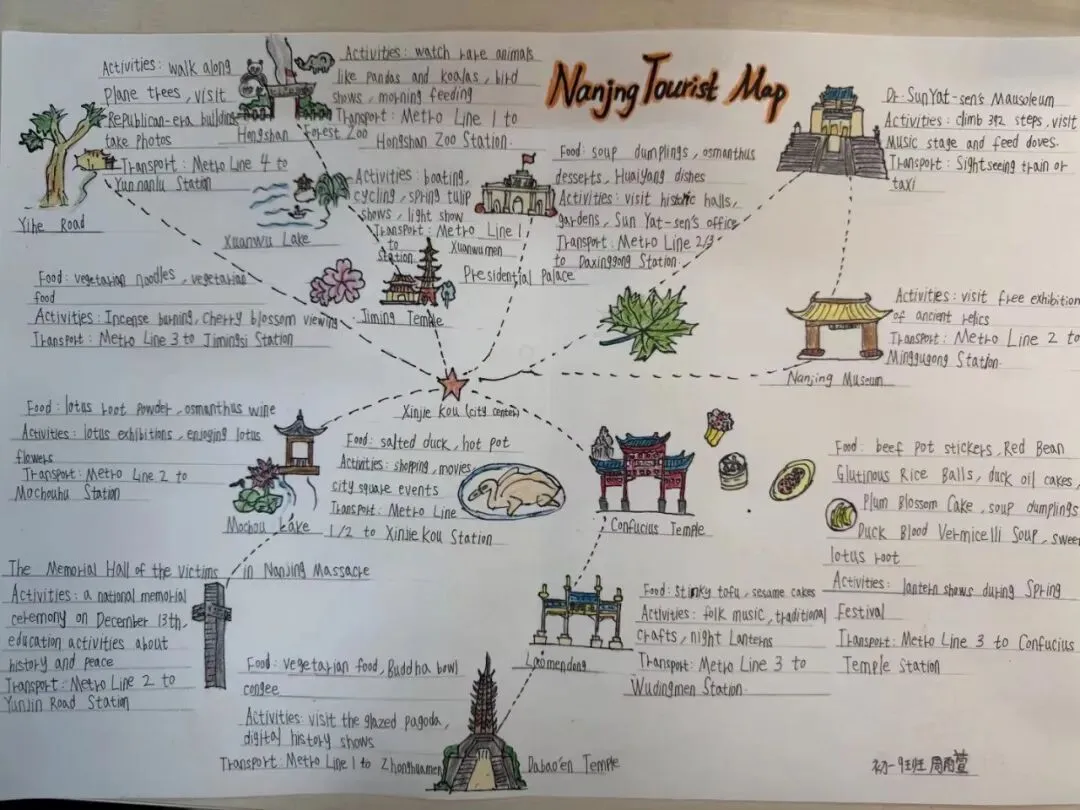 Nanjng Tourist Map
Activities: walk along
Plane trees, visit
Republican-era building
take photos
Transport: Metro Line 4 to
Yunnanlu Station
Yihe Road
Activities: watch rare animals
like pandas and koalas, bird
shows, morning feeding
Transport: Metro Line 1 to
Hongshan Zoo Station.
Hongshan Forest Zoo
Activities: boating,
cycling, spring tulip
shows, light show
Transport: Metro Line 1
to Xuanwumen
Station
Xuanwu Lake
Food: soup dumplings, osmanthus
desserts, Huaiyang dishes
Activities: visit historic halls,
gardens, Sun Yat-sen's office
Transport: Metro Line 2/3
to Daxinggong Station.
Presidential Palace
Dr. Sun Yat-sen's Mausoleum
Activities: climb 392 steps, visit
Music stage and feed doves.
Transport: Sightseeing train or
taxi
Food: vegetarian noodles, vegetarian
food
Activities: Incense burning, cherry blossom viewing
Transport: Metro Line 3 to Jimingsi Station
Jiming Temple
Activities: visit free exhibition
of ancient relics
Transport: Metro Line 2 to
Minggugong Station.
Nanjing Museum
Xinjie Kou (city center)
Food: salted duck, hot pot
Activities: shopping, movies
city square events
Transport: Metro Line
1/2 to Xinjie Kou Station
Food: lotus root powder, osmanthus wine
Activities: lotus exhibitions, enjoying lotus
flowers
Transport: Metro Line 2 to
Mochouhu Station
Mochou Lake
Confucius Temple
Food: beef pot stickers, Red Bean
Glutinous Rice Balls, duck oil cakes,
Plum Blossom Cake, soup dumplings
Duck Blood Vermicelli Soup, sweet
lotus root
Activities: lantern shows during Spring
Festival
Transport: Metro Line 3 to Confucius
Temple Station
The Memorial Hall of the Victims in Nanjing Massacre
Activities: a national memorial
ceremony on December 13th,
education activities about
history and peace
Transport: Metro Line 2 to
Yunjin Road Station
Food: stinky tofu, sesame cakes
Activities: folk music, traditional
crafts, night lanterns
Transport: Metro Line 3 to
Wudingmen Station.
Laomendong
Food: vegetarian food, Buddha bowl
congee
Activities: visit the glazed pagoda,
digital history shows
Transport: Metro Line 1 to Zhonghuamen
Dabao'en Temple
初一 班 周雨萱